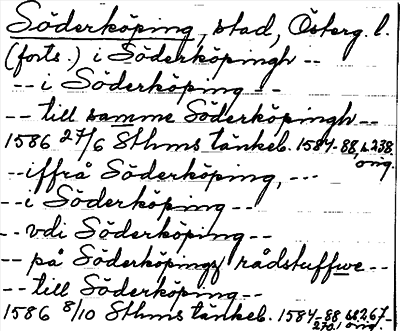 Söderköping, stad, Österg. l.
(forts.) i Söderköpingh --
-- i Söderköping --
-- till samme Söderköpingh --
1586 27/6 Sthms tänkeb. 1584-88, s. 238, orig.
-- iffrå Söderköping, ---
-- i Söderköping --
-- vdi Söderköping --
-- på Söderköpingz rådstuffwe --
-- till Söderköping --
1586 8/10 Sthms tänkeb. 1584-88 ss 267-270. orig.